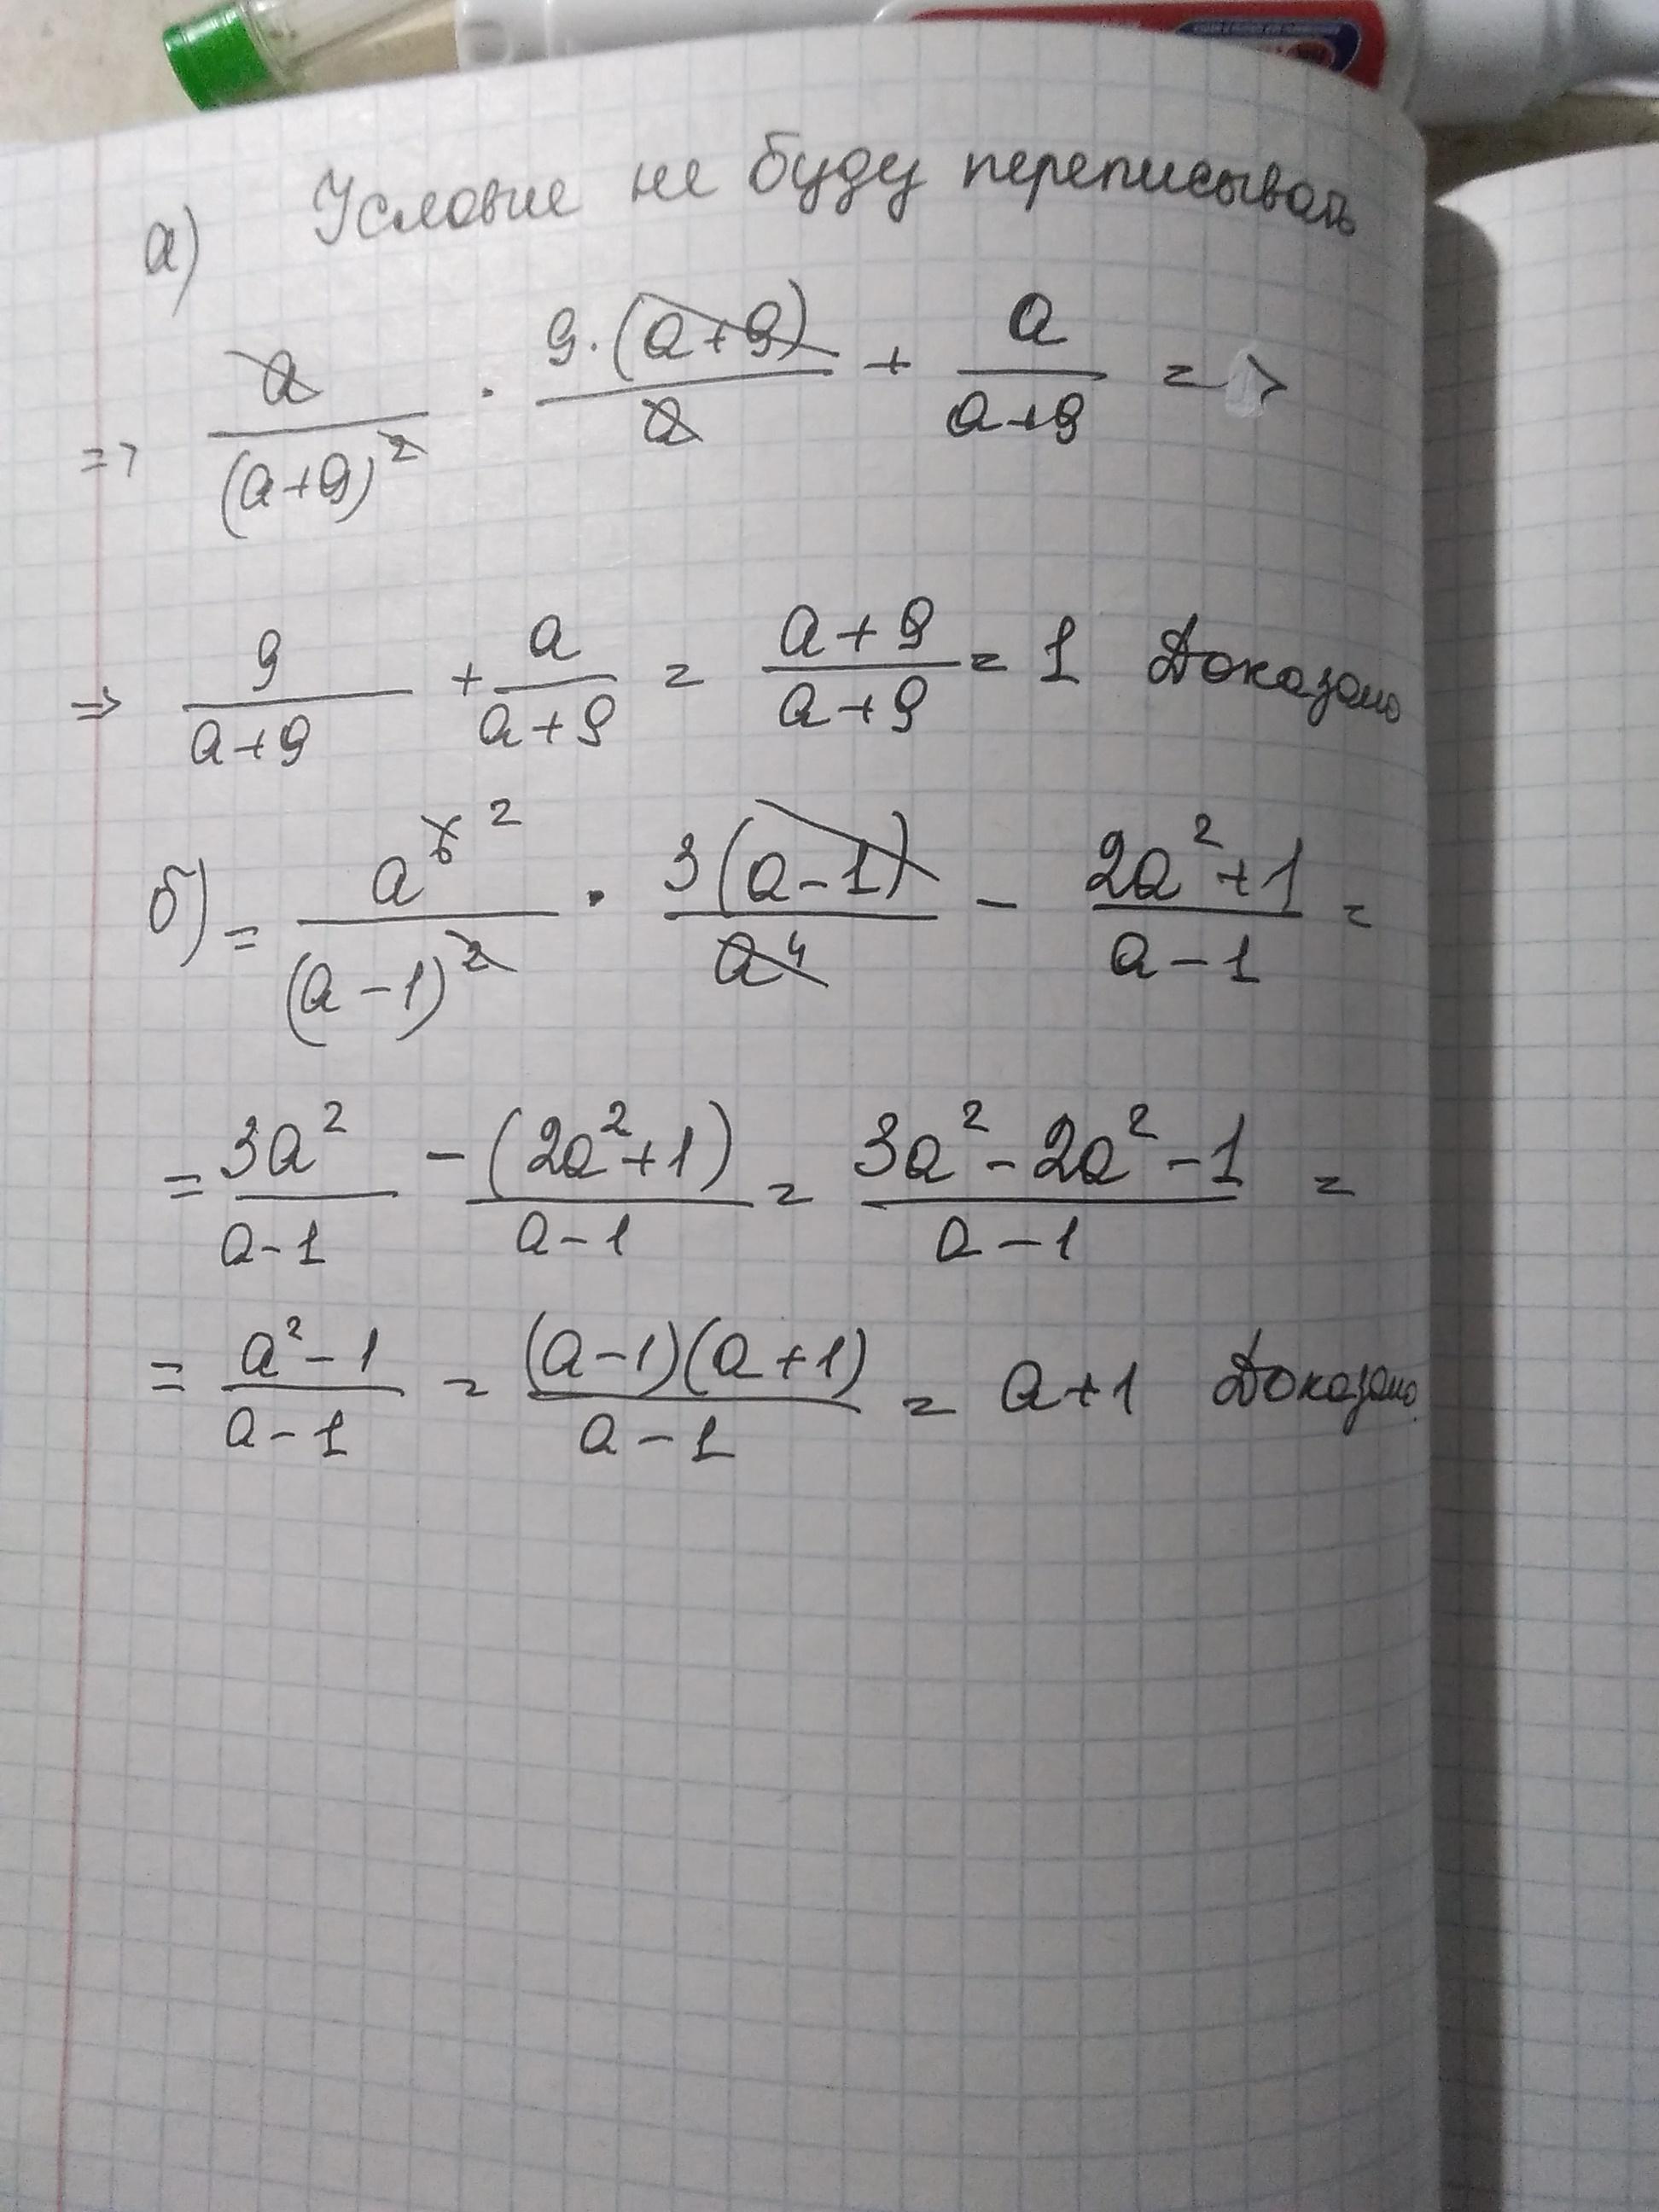 а) Условие не буду переписывать
=> a/(a+9)² · 9·(a+9)/a + a/(a+9) =>
=> 9/(a+9) + a/(a+9) = (a+9)/(a+9) = 1 Доказано
б) = a⁶ ²/(a-1)² · 3(a-1)/a⁴ - (2a²+1)/(a-1) =
= 3a²/(a-1) -(2a²+1)/(a-1) = (3a²-2a²-1)/(a-1) =
= (a²-1)/(a-1) = (a-1)(a+1)/(a-1) = a+1 Доказано